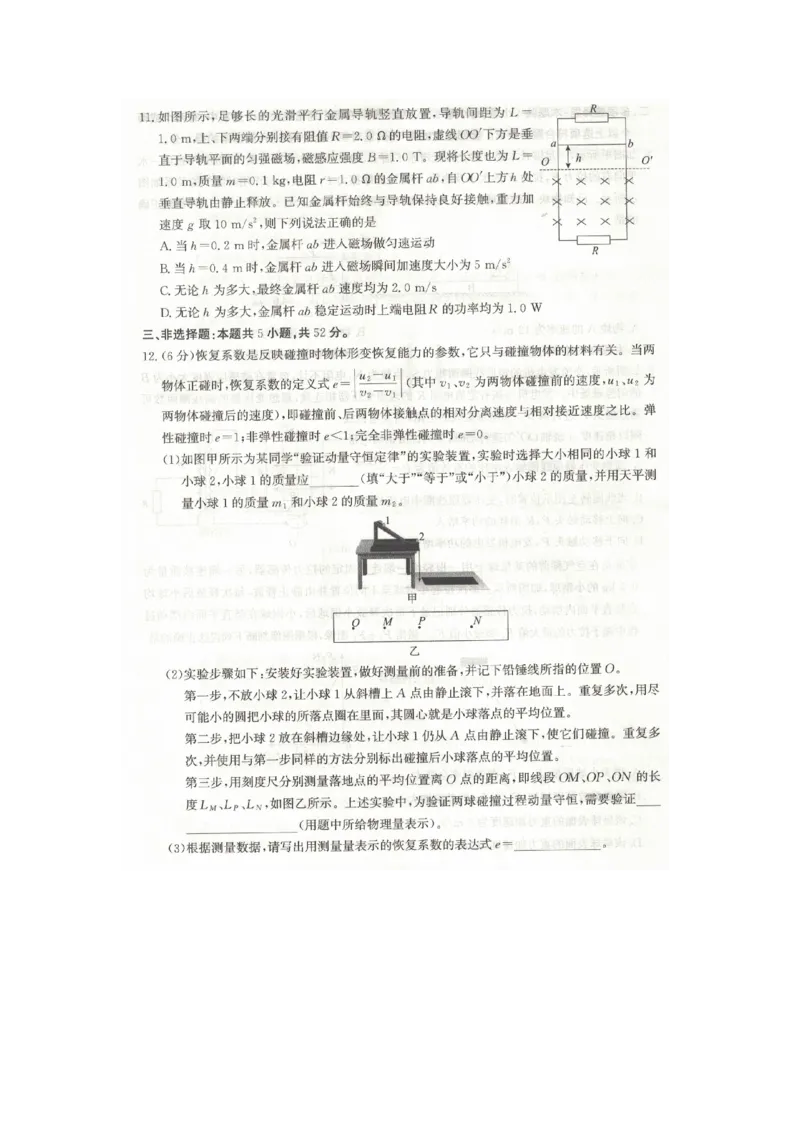 11.如图所示,足够长的光滑平行金属导轨竖直放置,导轨间距为 L=
1.0 m,上、下两端分别接有阻值R=2.0 Ω的电阻,虚线OO′下方是垂
直于导轨平面的匀强磁场,磁感应强度 B=1.0 T。现将长度也为 L=
1.0 m,质量 m=0.1 kg,电阻 r=1.0 Ω的金属杆 ab,自 OO′上方 h 处
垂直导轨由静止释放。已知金属杆始终与导轨保持良好接触,重力加
速度 g 取 10 m/s²,则下列说法正确的是
A.当 h=0.2 m 时,金属杆 ab 进入磁场做匀速运动
B.当 h=0.4 m 时,金属杆 ab 进入磁场瞬间加速度大小为 5 m/s²
C.无论 h 为多大,最终金属杆 ab 速度均为 2.0 m/s
D.无论 h 为多大,金属杆 ab 稳定运动时上端电阻 R 的功率均为 1.0 W
R
a
b
h
O
O′
R
三、非选择题:本题共 5 小题,共 52 分。
12.(6 分)恢复系数是反映碰撞时物体形变恢复能力的参数,它只与碰撞物体的材料有关。当两
物体正碰时,恢复系数的定义式 e=|(u₂−u₁)/(v₂−v₁)|(其中 v₁、v₂ 为两物体碰撞前的速度,u₁、u₂ 为
两物体碰撞后的速度),即碰撞前、后两物体接触点的相对分离速度与相对接近速度之比。弹
性碰撞时 e=1;非弹性碰撞时 e<1;完全非弹性碰撞时 e=0。
(1)如图甲所示为某同学“验证动量守恒定律”的实验装置,实验时选择大小相同的小球 1 和
小球 2,小球 1 的质量应________(填“大于”“等于”或“小于”)小球 2 的质量,并用天平测
量小球 1 的质量 m₁ 和小球 2 的质量 m₂。
1
2
甲
O M P N
乙
(2)实验步骤如下:安装好实验装置,做好测量前的准备,并记下铅锤线所指的位置 O。
第一步,不放小球 2,让小球 1 从斜槽上 A 点由静止滚下,并落在地面上。重复多次,用尽
可能小的圆把小球的所落点圈在里面,其圆心就是小球落点的平均位置。
第二步,把小球 2 放在斜槽边缘处,让小球 1 仍从 A 点由静止滚下,使它们碰撞。重复多
次,并使用与第一步同样的方法分别标出碰撞后小球落点的平均位置。
第三步,用刻度尺分别测量落地点的平均位置离 O 点的距离,即线段 OM、OP、ON 的长
度 L_M、L_P、L_N,如图乙所示。上述实验中,为验证两球碰撞过程动量守恒,需要验证____
__________________(用题中所给物理量表示)。
(3)根据测量数据,请写出用测量量表示的恢复系数的表达式 e=______________。